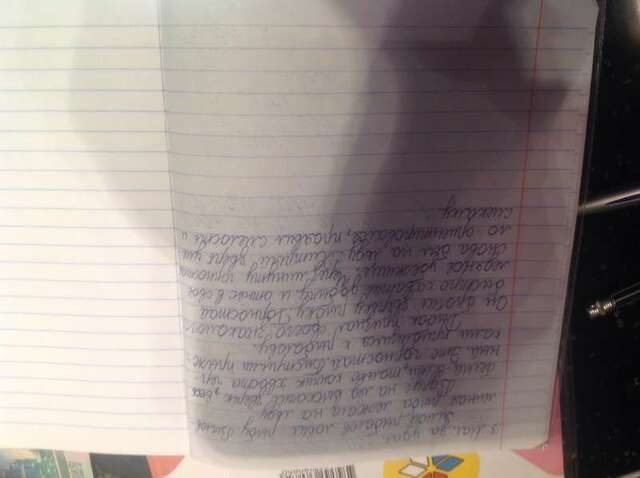 Зимой рыболов ловил рыбу. Вылов
ленная рыба лежала на льду.
Вдруг на лёд выскочил зверёк, весь
белый-белый, только кончик хвоста чёр-
ный. Это горностай. Быстрыми прыж-
ками приблизился к рыболову.
Рыбак признал своего знакомого.
Он бросил зверьку рыбку. Горностай
быстро схватил добычу и отнёс в своё
ледяное убежище. Через минуту горностай
снова был на льду. Хитрый зверь уме
ло ориентировался, проявил смелость и
смекалку.